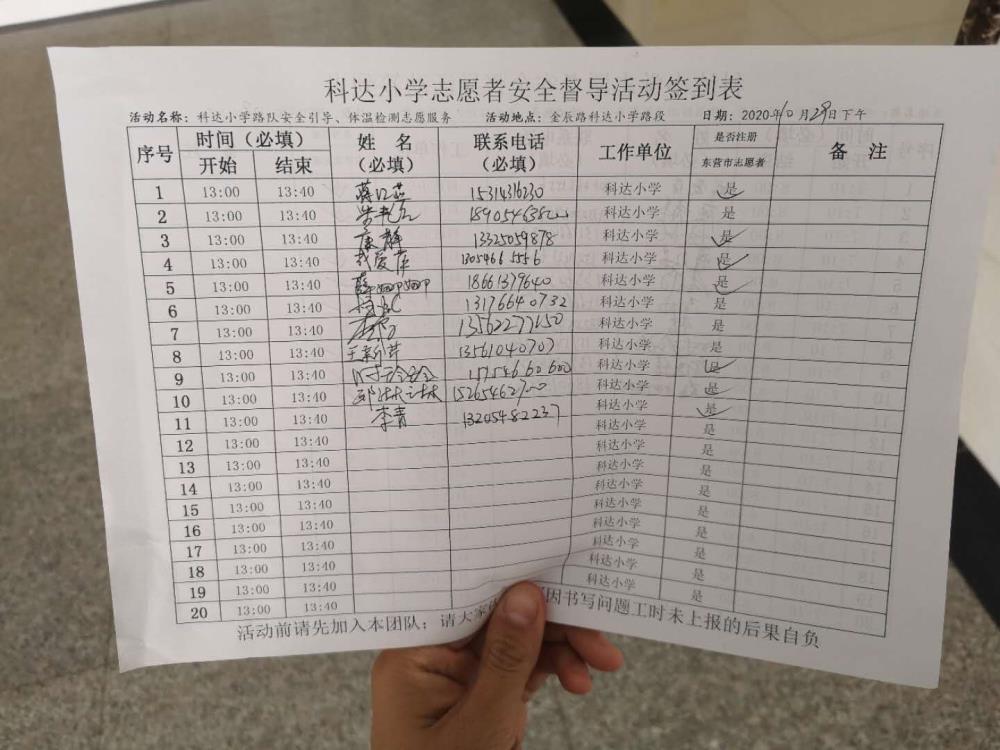 科达小学志愿者安全督导活动签到表
活动名称：科达小学路队安全引导、体温检测志愿服务 活动地点：金辰路科达小学路段 日期：2020年10月29日下午
序号 时间（必填） 姓 名（必填） 联系电话（必填） 工作单位 是否注册东营市志愿者 备 注
开始 结束
1 13:00 13:40 15314316230 科达小学 是
2 13:00 13:40 科达小学 是
3 13:00 13:40 康静 13325059878 科达小学 是
4 13:00 13:40 13054665556 科达小学 是
5 13:00 13:40 薛 18661379640 科达小学 是
6 13:00 13:40 13176640732 科达小学 是
7 13:00 13:40 13562277150 科达小学 是
8 13:00 13:40 王新芹 13561040707 科达小学 是
9 13:00 13:40 15754660600 科达小学 是
10 13:00 13:40 15265462700 科达小学 是
11 13:00 13:40 李青 13205482237 科达小学 是
12 13:00 13:40 科达小学 是
13 13:00 13:40 科达小学 是
14 13:00 13:40 科达小学 是
15 13:00 13:40 科达小学 是
16 13:00 13:40 科达小学 是
17 13:00 13:40 科达小学 是
18 13:00 13:40 科达小学 是
19 13:00 13:40 科达小学 是
20 13:00 13:40
活动前请先加入本团队；请大家 因书写问题工时未上报的后果自负